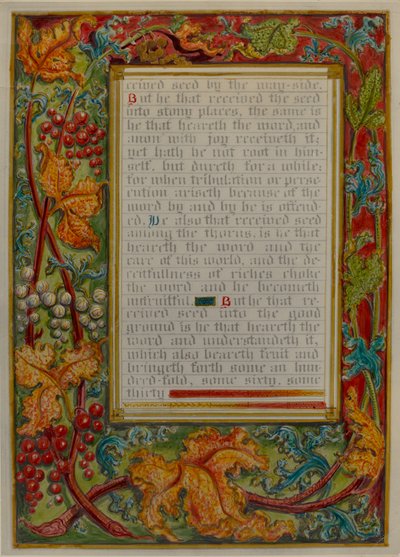 ceived seed by the way-side.
But he that received the seed
into stony places, the same is
he that heareth the word, and
anon with joy receiveth it;
yet hath he not root in him-
self, but dureth for a while:
for when tribulation or perse-
cution ariseth because of the
word by and by he is offend-
ed. He also that received seed
among the thorns, is he that
heareth the word and the
care of this world, and the de-
ceitfulness of riches choke
the word and he becometh
unfruitful But he that re-
ceived seed into the good
ground is he that heareth the
word and understandeth it,
which also beareth fruit and
bringeth forth some an hun-
dred-fold, some sixty, some
thirty